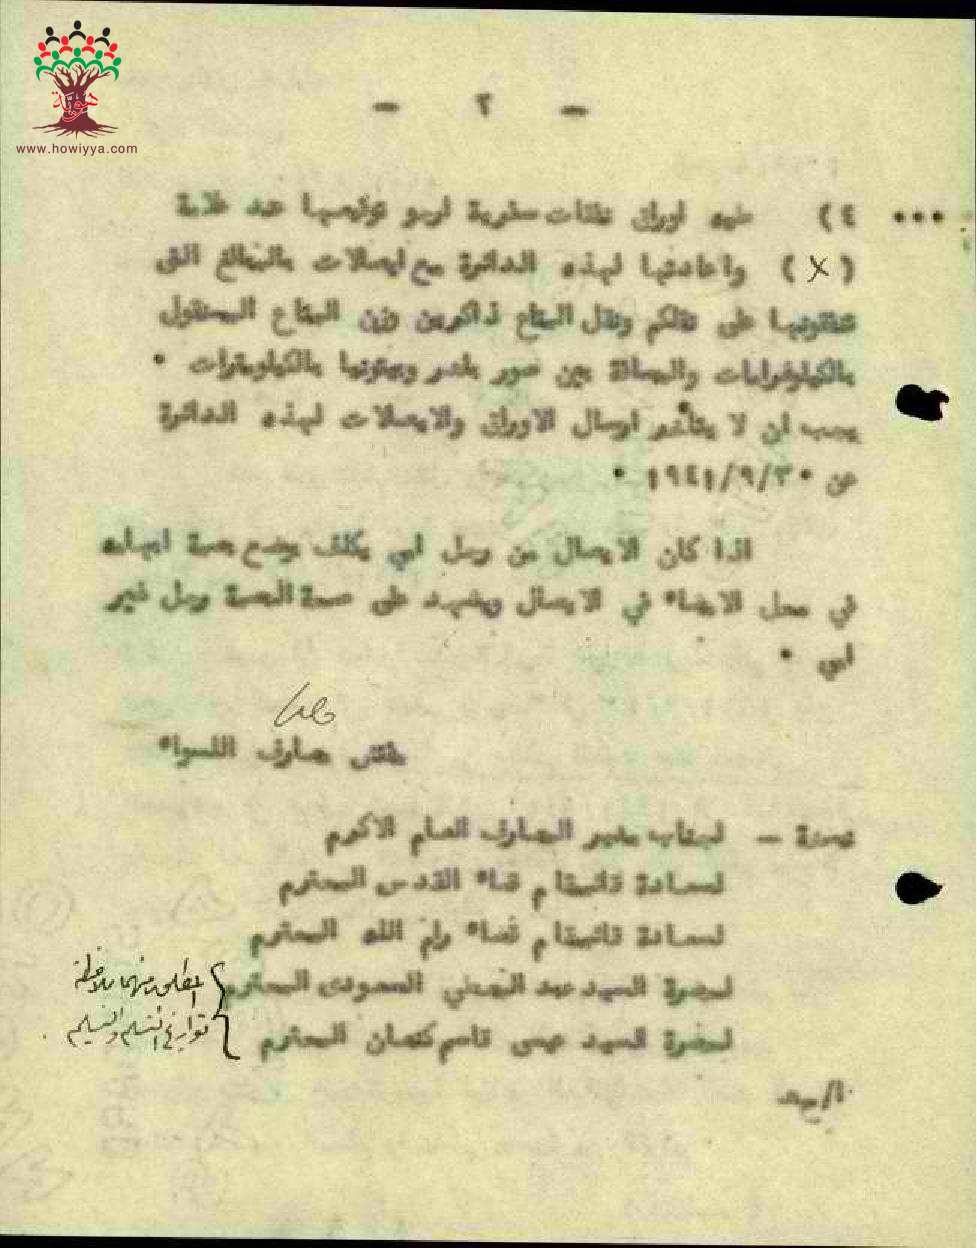 هوية
www.howiyya.com
— ٢ —
... ٤) طيه اوراق نفقات سفرية ارجو توقيعها عند علامة
(X) واعادتها لهذه الدائرة مع ايصالات بالمبالغ التي
تنفقونها على نقلكم ونقل المتاع ذاكرين وزن المتاع المنقول
بالكيلوغرامات والمسافة بين صور باهر وبيتونيا بالكيلومترات .
يجب ان لا يتأخر ارسال الاوراق والايصالات لهذه الدائرة
عن ١٩٤١/٩/٣٠ .
اذا كان الايصال من رجل امي يكلف بوضع بصمة ابهامه
في محل الامضاء في الايصال ويشهد على صحة البصمة رجل غير
امي .
مفتش معارف اللواء
نسخة — لجناب مدير المعارف العام الاكرم
لسعادة قائمقام قضاء القدس المحترم
لسعادة قائمقام قضاء رام الله المحترم
لحضرة السيد عبد المعطي السعودى المحترم
لحضرة السيد عيسى قاسم كنعان المحترم
المطلوب منهما ملاحظة
تواريخ التسلم والتسليم